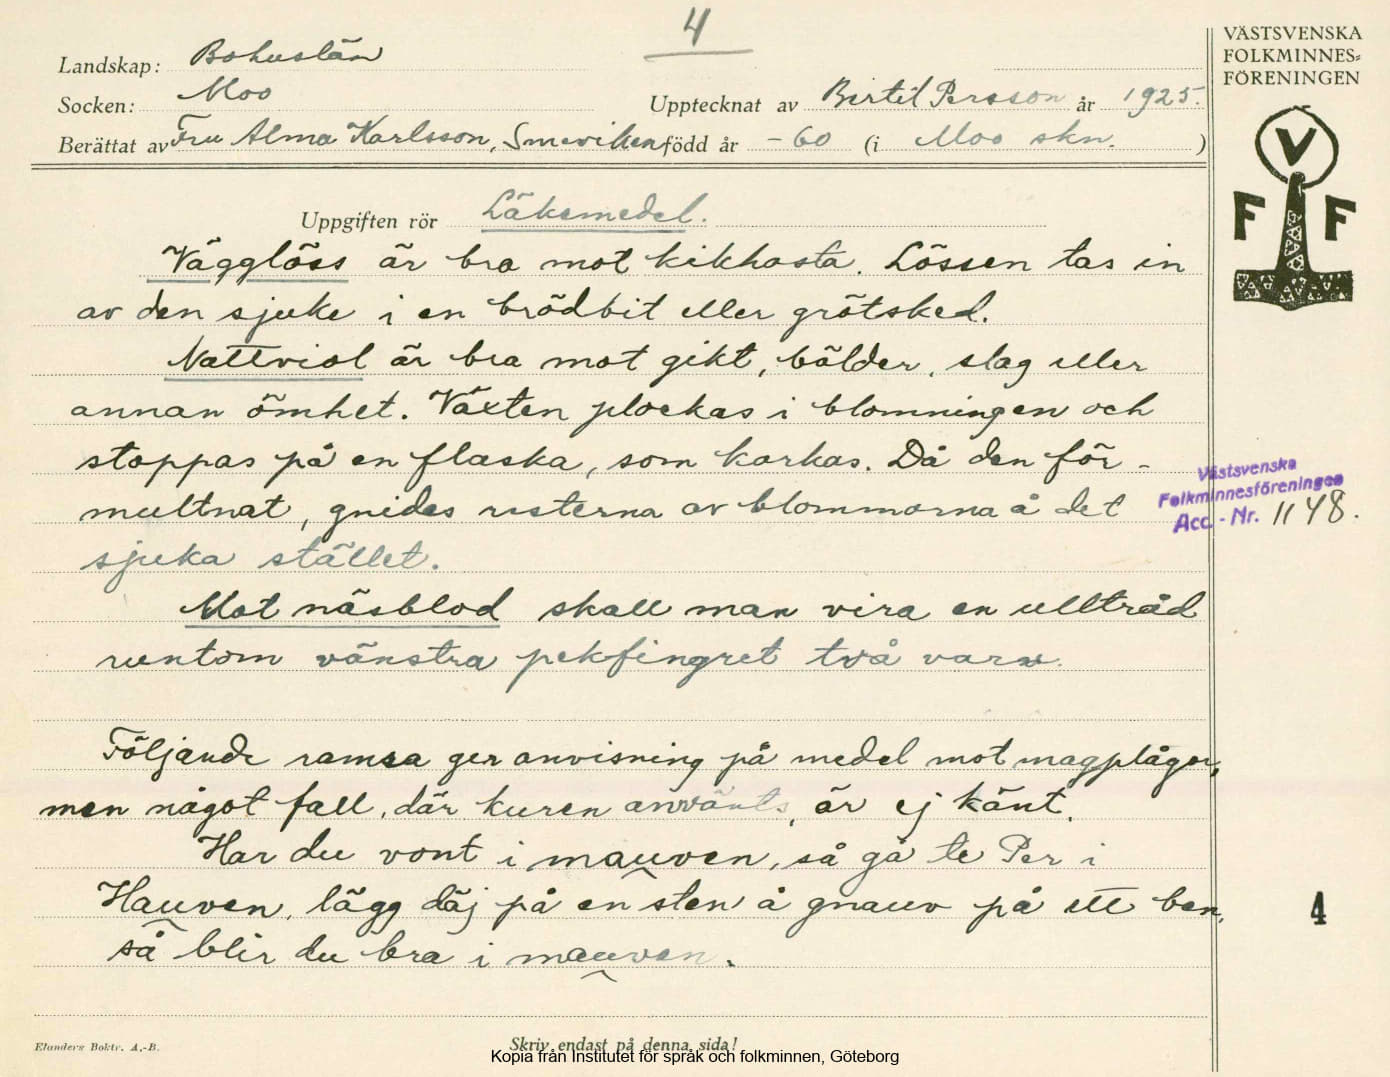 4
VÄSTSVENSKA
FOLKMINNES=
FÖRENINGEN
Landskap: Bohuslän
Socken: Moo
Upptecknat av Bertil Persson år 1925.
Berättat av Fru Alma Karlsson, Smeviken född år -60 (i Moo skn. )
V
F F
Uppgiften rör Läkemedel.
Vägglöss är bra mot kikhosta. Lössen tas in
av den sjuke i en brödbit eller grötsked.
Nattviol är bra mot gikt, bölder, slag eller
annan ömhet. Växten plockas i blomningen och
stoppas på en flaska, som korkas. Då den för-
multnat, gnides resterna av blommorna å det
sjuka stället.
Västsvenska
Folkminnesföreningen
Acc.-Nr. 1148.
Mot näsblod skall man vira en ulltråd
runtom vänstra pekfingret två varv.
Följande ramsa ger anvisning på medel mot magplågor,
men något fall, där kuren använts, är ej känt.
Har du vont i mauven, så gå te Per i
Hauven, lägg däj på en sten å gnauv på ett ben,
så blir du bra i mauven.
4
Elanders Boktr. A.-B.
Skriv endast på denna sida!
Kopia från Institutet för språk och folkminnen, Göteborg